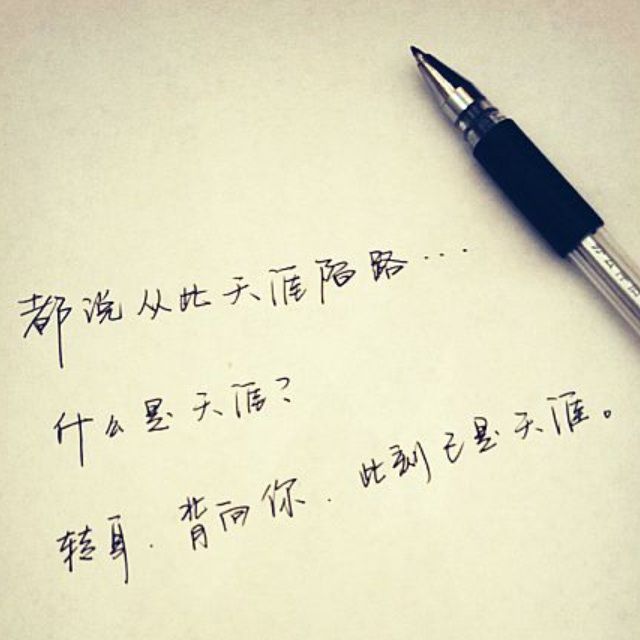 都说从此天涯陌路…
什么是天涯?
转身.背向你.此刻已是天涯。